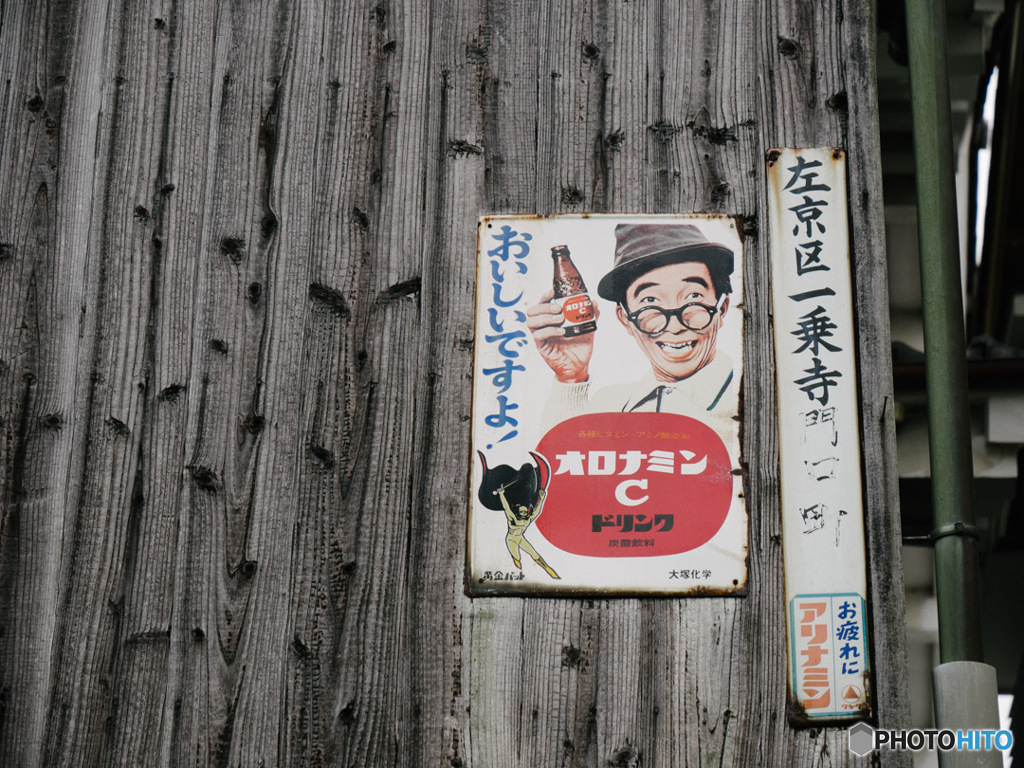 おいしいですよ!
オロナミン
C
ドリンク
各種ビタミン・アミノ酸添加
オロナミン
C
ドリンク
炭酸飲料
黄金バット
大塚化学
左京区一乗寺門口町
お疲れに
アリナミン
タケダ
PHOTOHITO